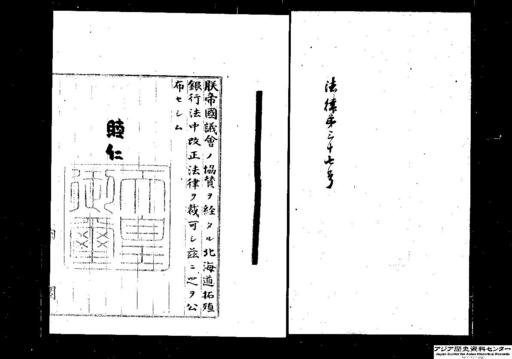 法律第三十七号
朕帝國議會ノ協賛ヲ経タル北海道拓殖
銀行法中改正法律ヲ裁可シ茲ニ之ヲ公
布セシム
睦仁
天皇
御璽
アジア歴史資料センター
Japan Center for Asian Historical Records